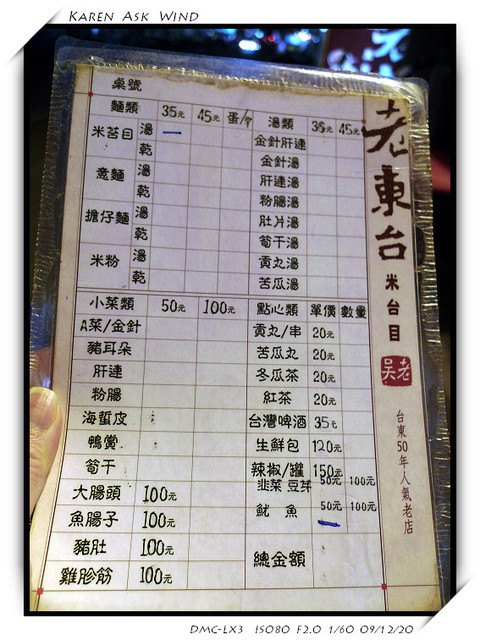 KAREN ASK WIND
桌號
麵類 35元 45元 蛋/
湯類 35元 45元
米苔目 湯
乾
意麵 湯
乾
擔仔麵 湯
乾
米粉 湯
乾
金針肝連
金針湯
肝連湯
粉腸湯
肚片湯
筍干湯
貢丸湯
苦瓜湯
小菜類 50元 100元
A菜/金針
豬耳朵
肝連
粉腸
海蜇皮
鴨賞
筍干
大腸頭 100元
魚腸子 100元
豬肚 100元
雞胗筋 100元
點心類 單價 數量
貢丸/串 20元
苦瓜丸 20元
冬瓜茶 20元
紅茶 20元
台灣啤酒 35元
生鮮包 120元
辣椒/罐 150元
韭菜 豆芽 50元 100元
魷魚 50元 100元
總金額
老東台
米台目
老吳
台東50年人氣老店
DMC-LX3 ISO80 F2.0 1/60 09/12/20